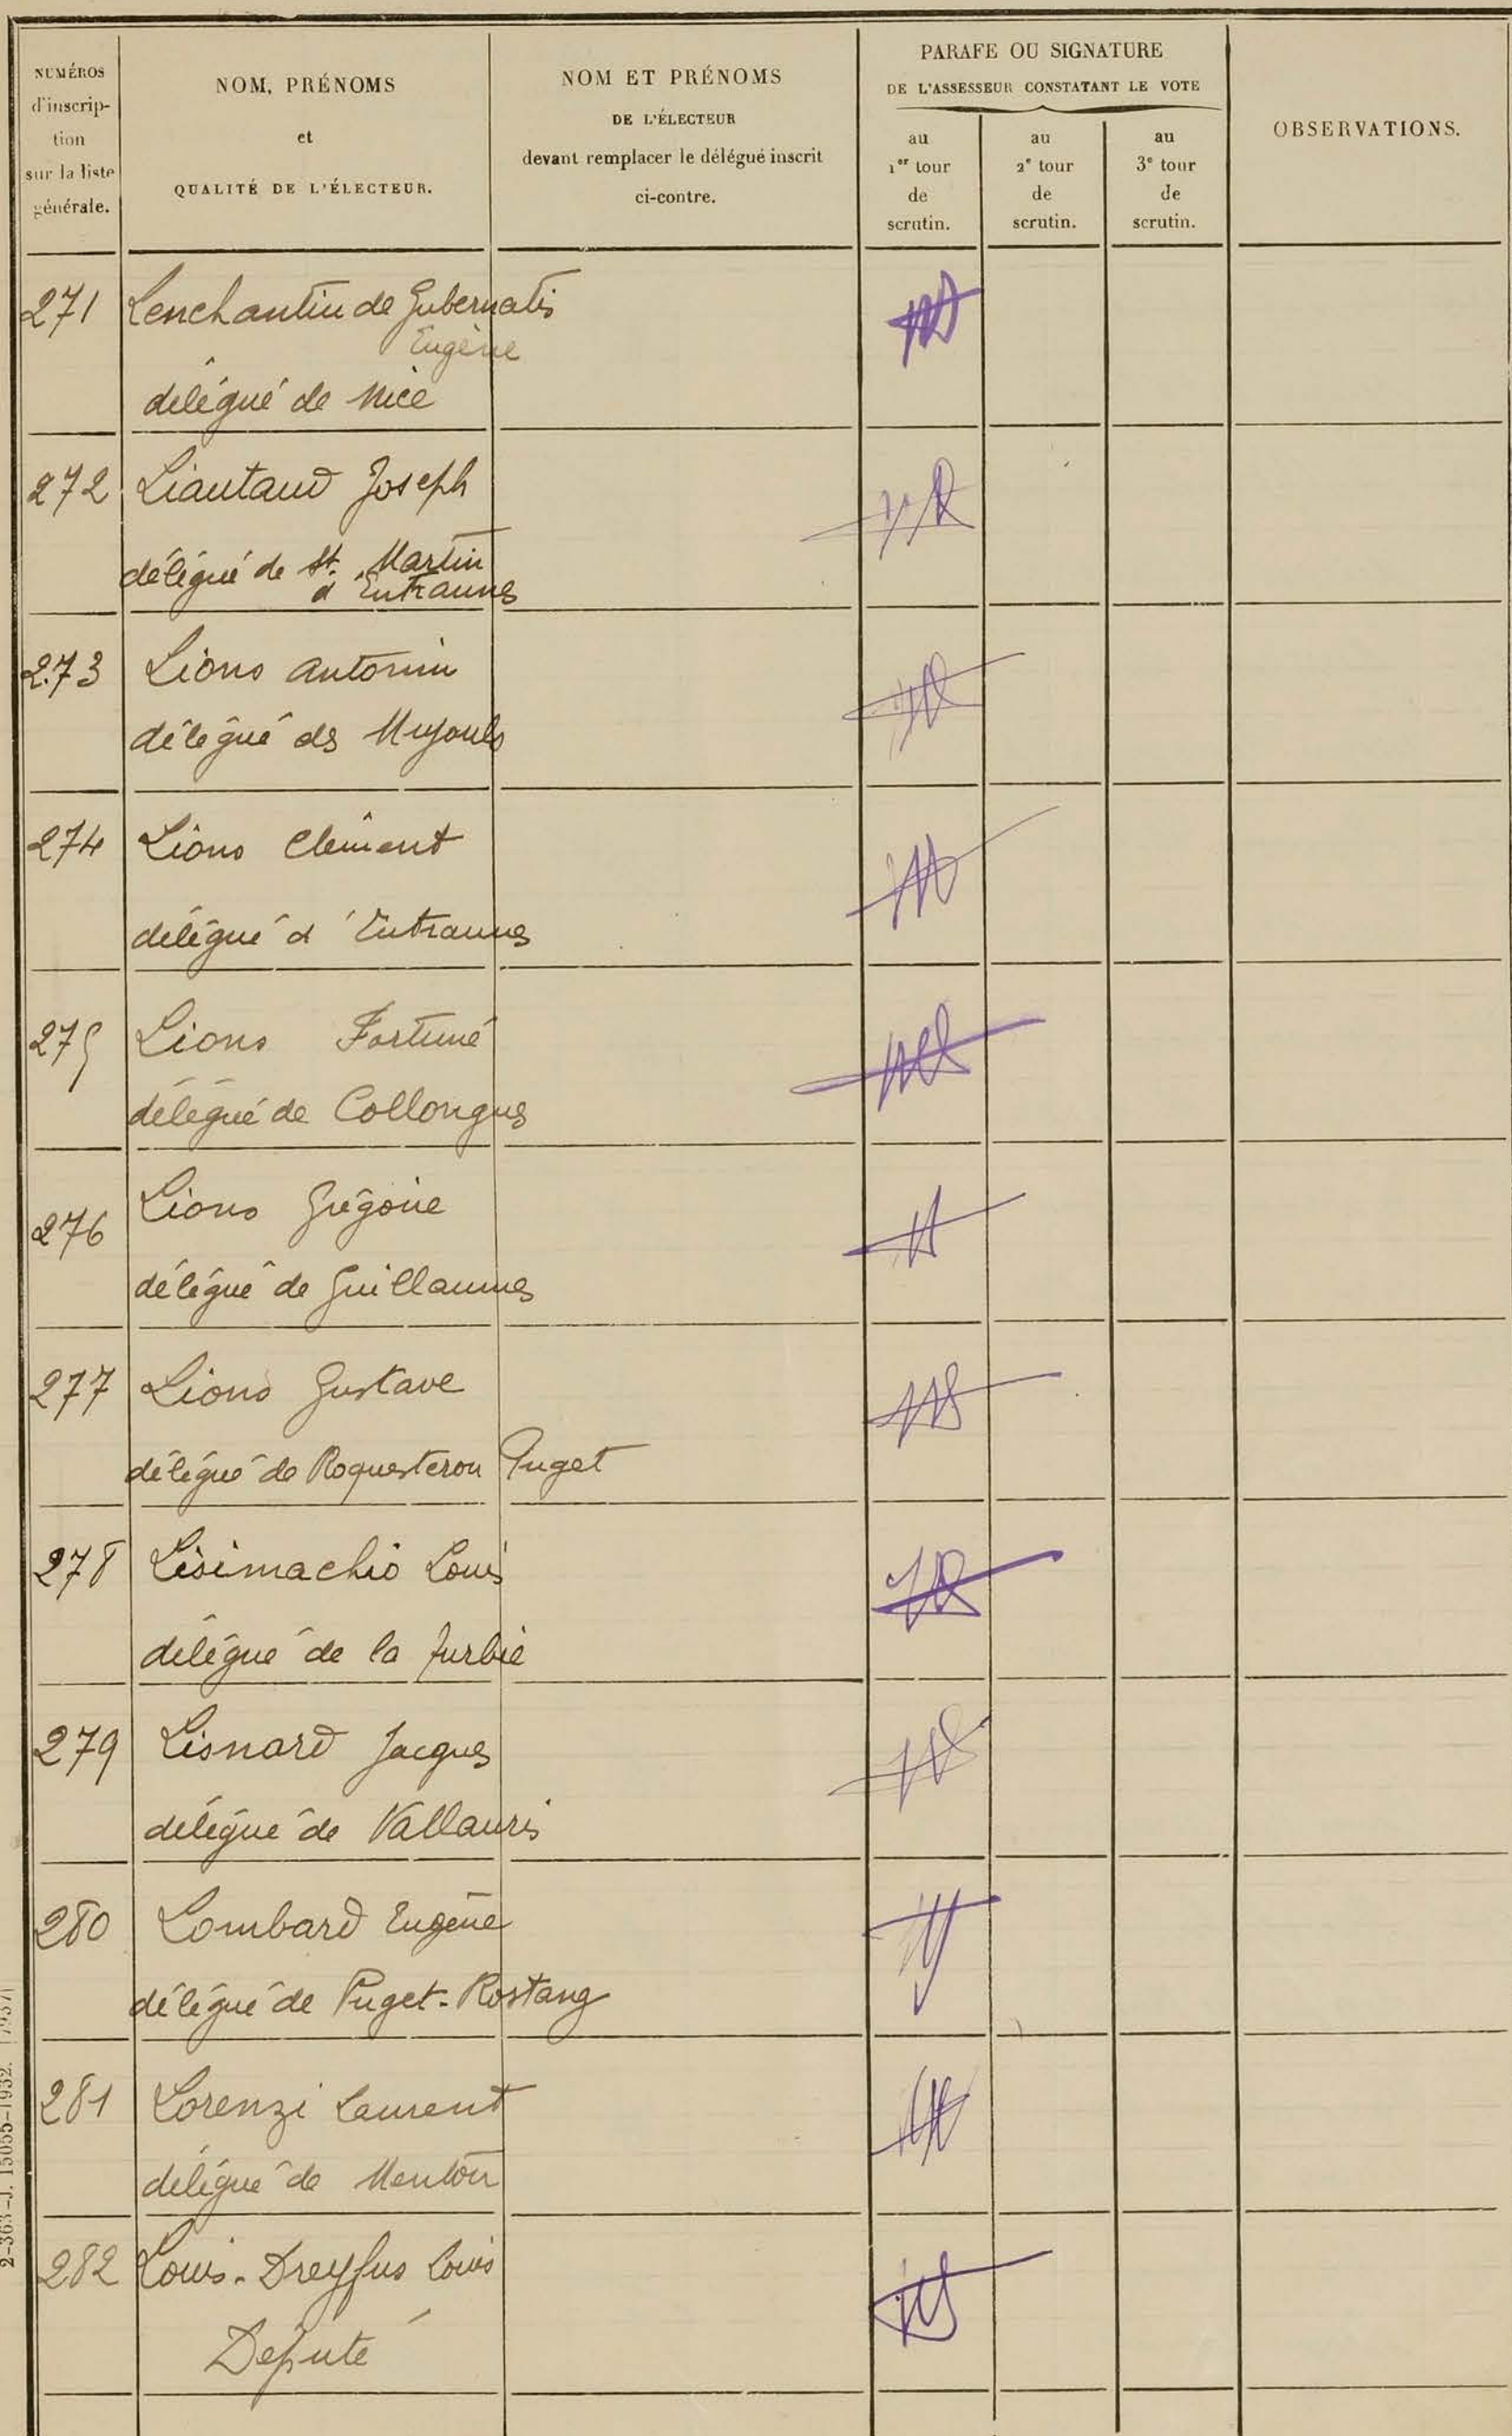 NUMÉROS
d'inscrip-
tion
sur la liste
générale.
NOM, PRÉNOMS
et
QUALITÉ DE L'ÉLECTEUR.
NOM ET PRÉNOMS
DE L'ÉLECTEUR
devant remplacer le délégué inscrit
ci-contre.
PARAFE OU SIGNATURE
DE L'ASSESSEUR CONSTATANT LE VOTE
au
1er tour
de
scrutin.
au
2e tour
de
scrutin.
au
3e tour
de
scrutin.
OBSERVATIONS.
271 Lenchantin de Gubernatis
Eugène
délégué de Nice
272 Liautaud Joseph
délégué de St. Martin
d'Entraunes
273 Lions Antonin
délégué des Mujouls
274 Lions Clément
délégué d'Entraunes
275 Lions Fortuné
délégué de Collongues
276 Lions Grégoire
délégué de Guillaumes
277 Lions Gustave
délégué de Roquesteron Puget
278 Lisimachio Louis
délégué de la Turbie
279 Lisnard Jacques
délégué de Vallauris
280 Lombard Eugène
délégué de Puget-Rostang
281 Lorenzi Laurent
délégué de Menton
282 Louis-Dreyfus Louis
Député
2-363-J. 15055-1932.